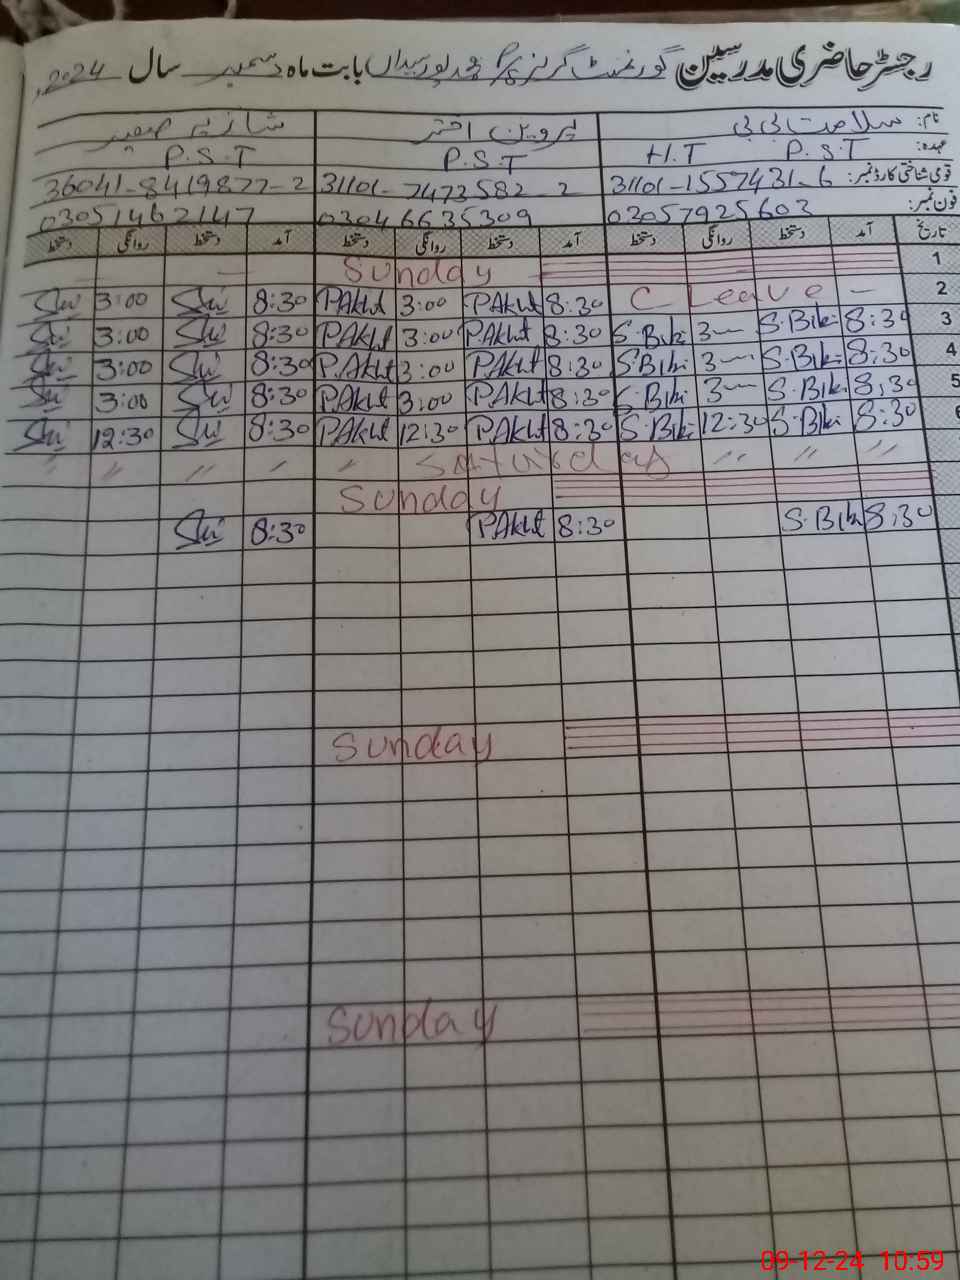 رجسٹر حاضری مدرسین گورنمنٹ گرلز پور سیداں بابت ماہ دسمبر سال 2024
نام: سلامت بی بی پروین اختر شازیہ صغیر
عہدہ: P.S.T H.T P.S.T P.S.T
قومی شناختی کارڈ نمبر: 31101-1557431-6 31101-7473582-2 36041-8419877-2
فون نمبر: 03057925603 03046635309 03051462147
تاریخ آمد دستخط روانگی دستخط آمد دستخط روانگی دستخط آمد دستخط روانگی دستخط
1 Sunday
2 C Leave - 8:30 PAkht 3:00 PAkht 8:30 3:00
3 8:30 S.Bibi 3 S.Bibi 8:30 PAkht 3:00 PAkht 8:30 3:00
4 8:30 S.Bibi 3 S.Bibi 8:30 PAkht 3:00 P.Akht 8:30 3:00
5 8:30 S.Bibi 3 S.Bibi 8:30 PAkht 3:00 PAkht 8:30 3:00
6 8:30 S.Bibi 12:30 S.Bibi 8:30 PAkht 12:30 PAkht 8:30 12:30
" " " Saturday " " " " "
Sunday
8:30 S.Bibi 8:30 PAkht 8:30
Sunday
Sunday
09-12-24 10:59